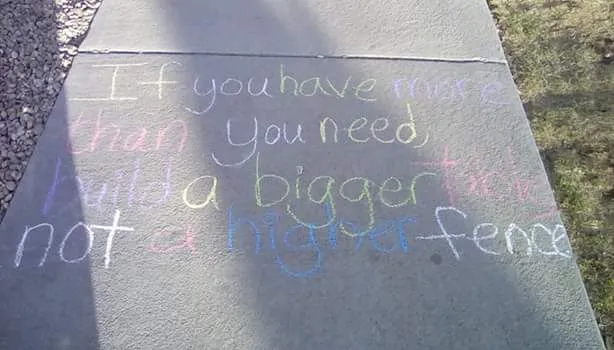 If you have more
than you need,
build a bigger table
not a higher fence